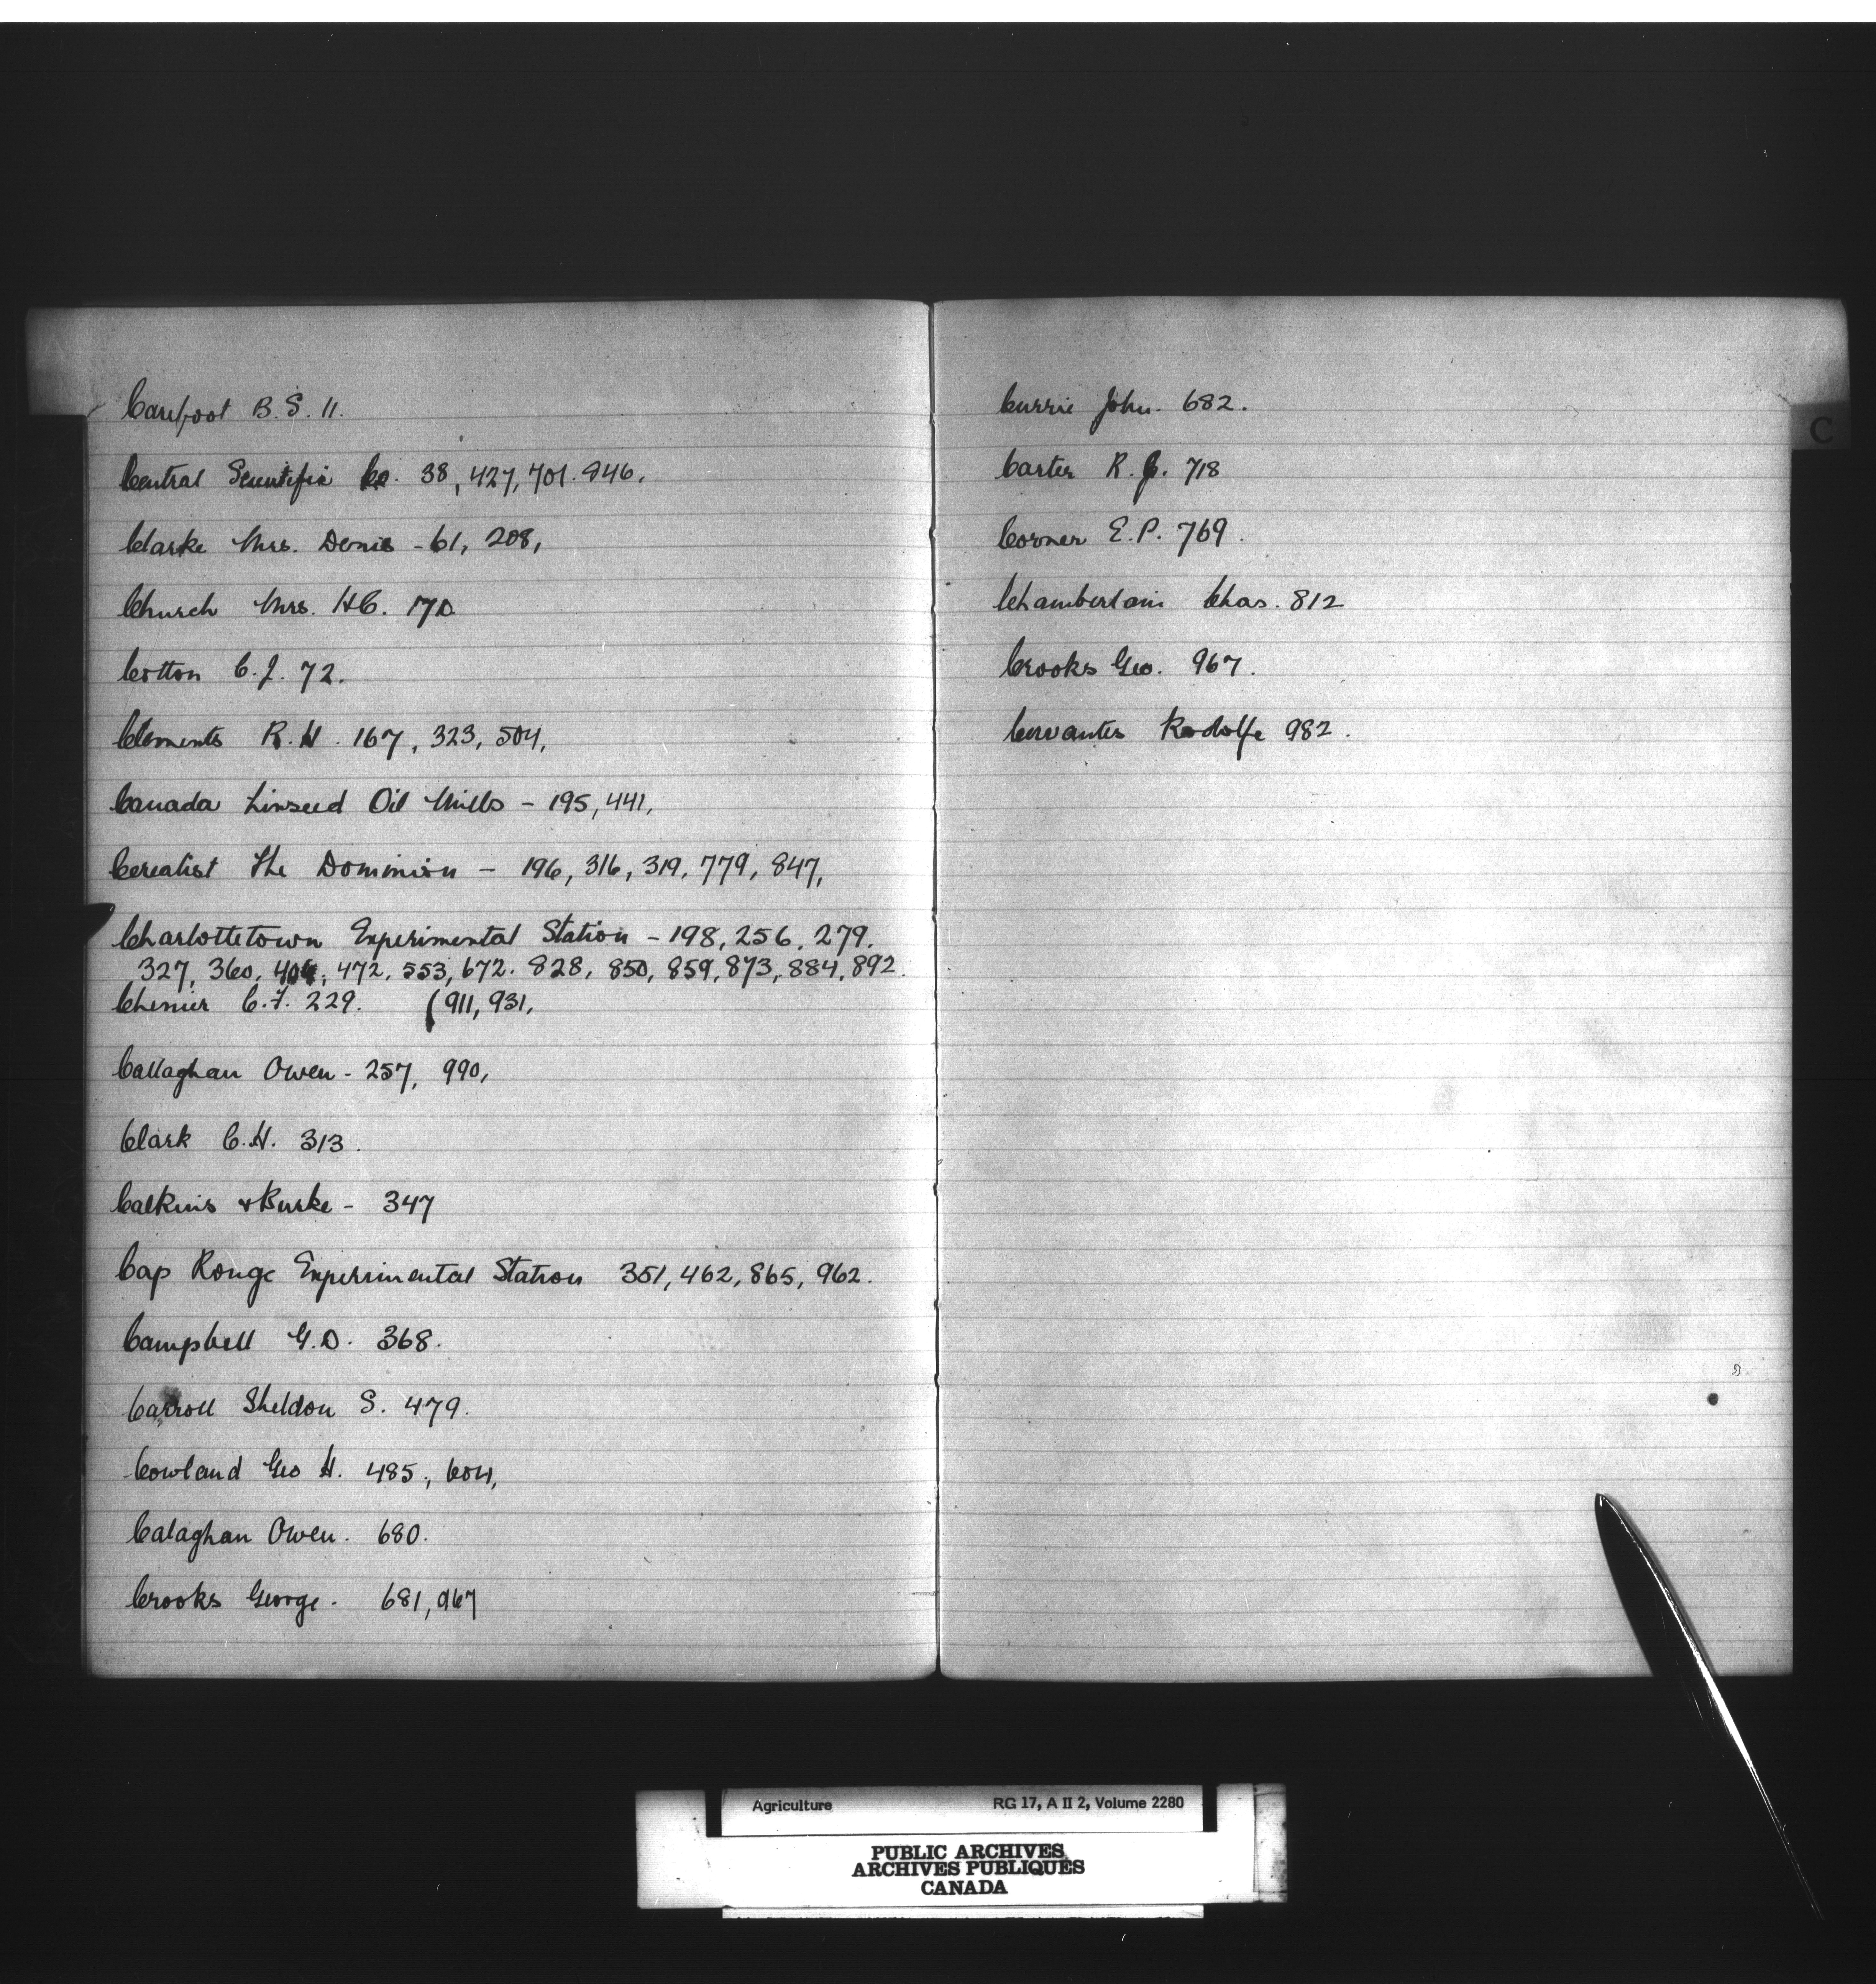 Carefoot B.S. 11.
Central Scientific Co. 38, 427, 701. 946,
Clarke Mrs. Denis - 61, 208,
Church Mrs. H.C. 170
Cotton C.J. 72.
Clements R.H. 167, 323, 504,
Canada Linseed Oil Mills - 195, 441,
Cerealist The Dominion - 196, 316, 319, 779, 847,
Charlottetown Experimental Station - 198, 256, 279.
327, 360, 404, 472, 553, 672. 828, 850, 859, 873, 884, 892.
Chenier C.F. 229. (911, 931,
Callaghan Owen - 257, 990,
Clark C.H. 313.
Calkins & Burke - 347
Cap Rouge Experimental Station 351, 462, 865, 962.
Campbell G.D. 368.
Carroll Sheldon S. 479.
Cowland Geo H. 485, 604,
Calaghan Owen. 680.
Crooks George. 681, 967
Currie John. 682.
Carter R.J. 718
Corner E.P. 769.
Chamberlain Chas. 812
Crooks Geo. 967.
Cervantes Rodolfe 982.
C
Agriculture RG 17, A II 2, Volume 2280
PUBLIC ARCHIVES
ARCHIVES PUBLIQUES
CANADA